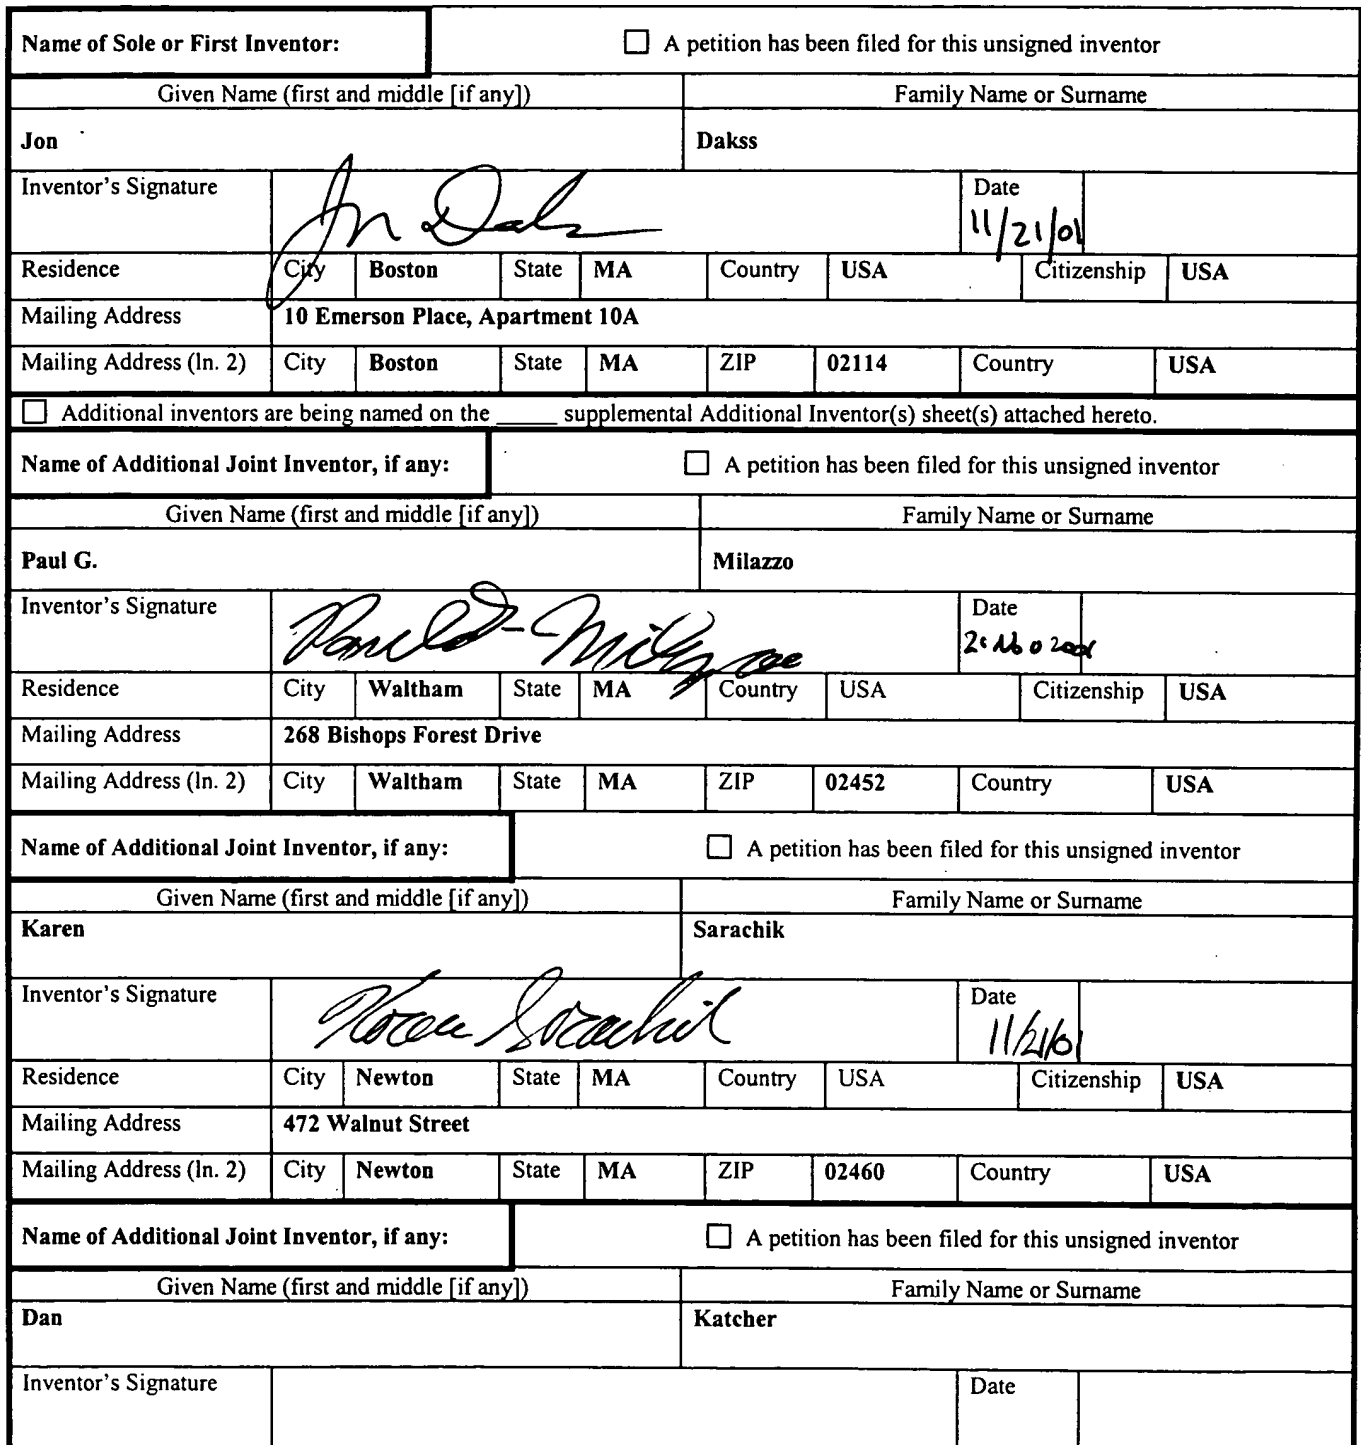 Name of Sole or First Inventor: ☐ A petition has been filed for this unsigned inventor
Given Name (first and middle [if any]) Family Name or Surname
Jon Dakss
Inventor's Signature Jon Daks Date 11/21/01
Residence City Boston State MA Country USA Citizenship USA
Mailing Address 10 Emerson Place, Apartment 10A
Mailing Address (ln. 2) City Boston State MA ZIP 02114 Country USA
☐ Additional inventors are being named on the _____ supplemental Additional Inventor(s) sheet(s) attached hereto.
Name of Additional Joint Inventor, if any: ☐ A petition has been filed for this unsigned inventor
Given Name (first and middle [if any]) Family Name or Surname
Paul G. Milazzo
Inventor's Signature Date
Residence City Waltham State MA Country USA Citizenship USA
Mailing Address 268 Bishops Forest Drive
Mailing Address (ln. 2) City Waltham State MA ZIP 02452 Country USA
Name of Additional Joint Inventor, if any: ☐ A petition has been filed for this unsigned inventor
Given Name (first and middle [if any]) Family Name or Surname
Karen Sarachik
Inventor's Signature Karen Sarachik Date 11/21/01
Residence City Newton State MA Country USA Citizenship USA
Mailing Address 472 Walnut Street
Mailing Address (ln. 2) City Newton State MA ZIP 02460 Country USA
Name of Additional Joint Inventor, if any: ☐ A petition has been filed for this unsigned inventor
Given Name (first and middle [if any]) Family Name or Surname
Dan Katcher
Inventor's Signature Date